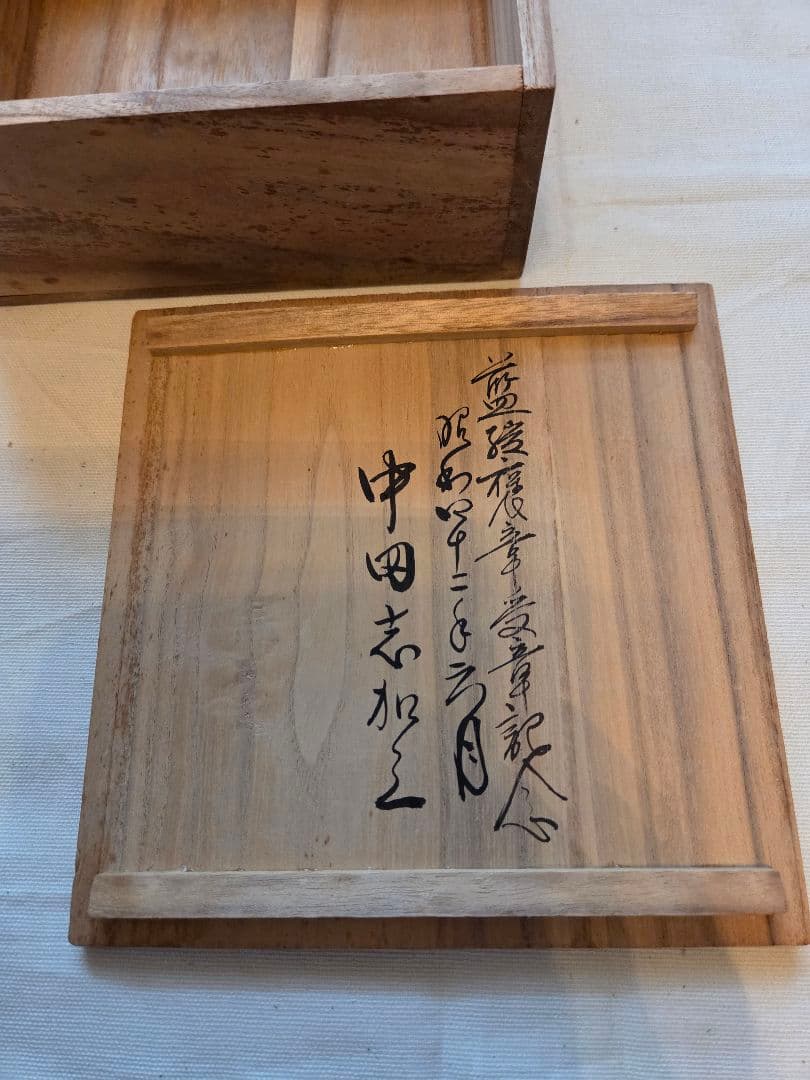 藍綬褒章受章記念
昭和四十二年六月
中田志加三